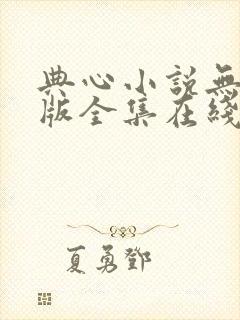 典心小説無
版全集在綫
夏勇鄧